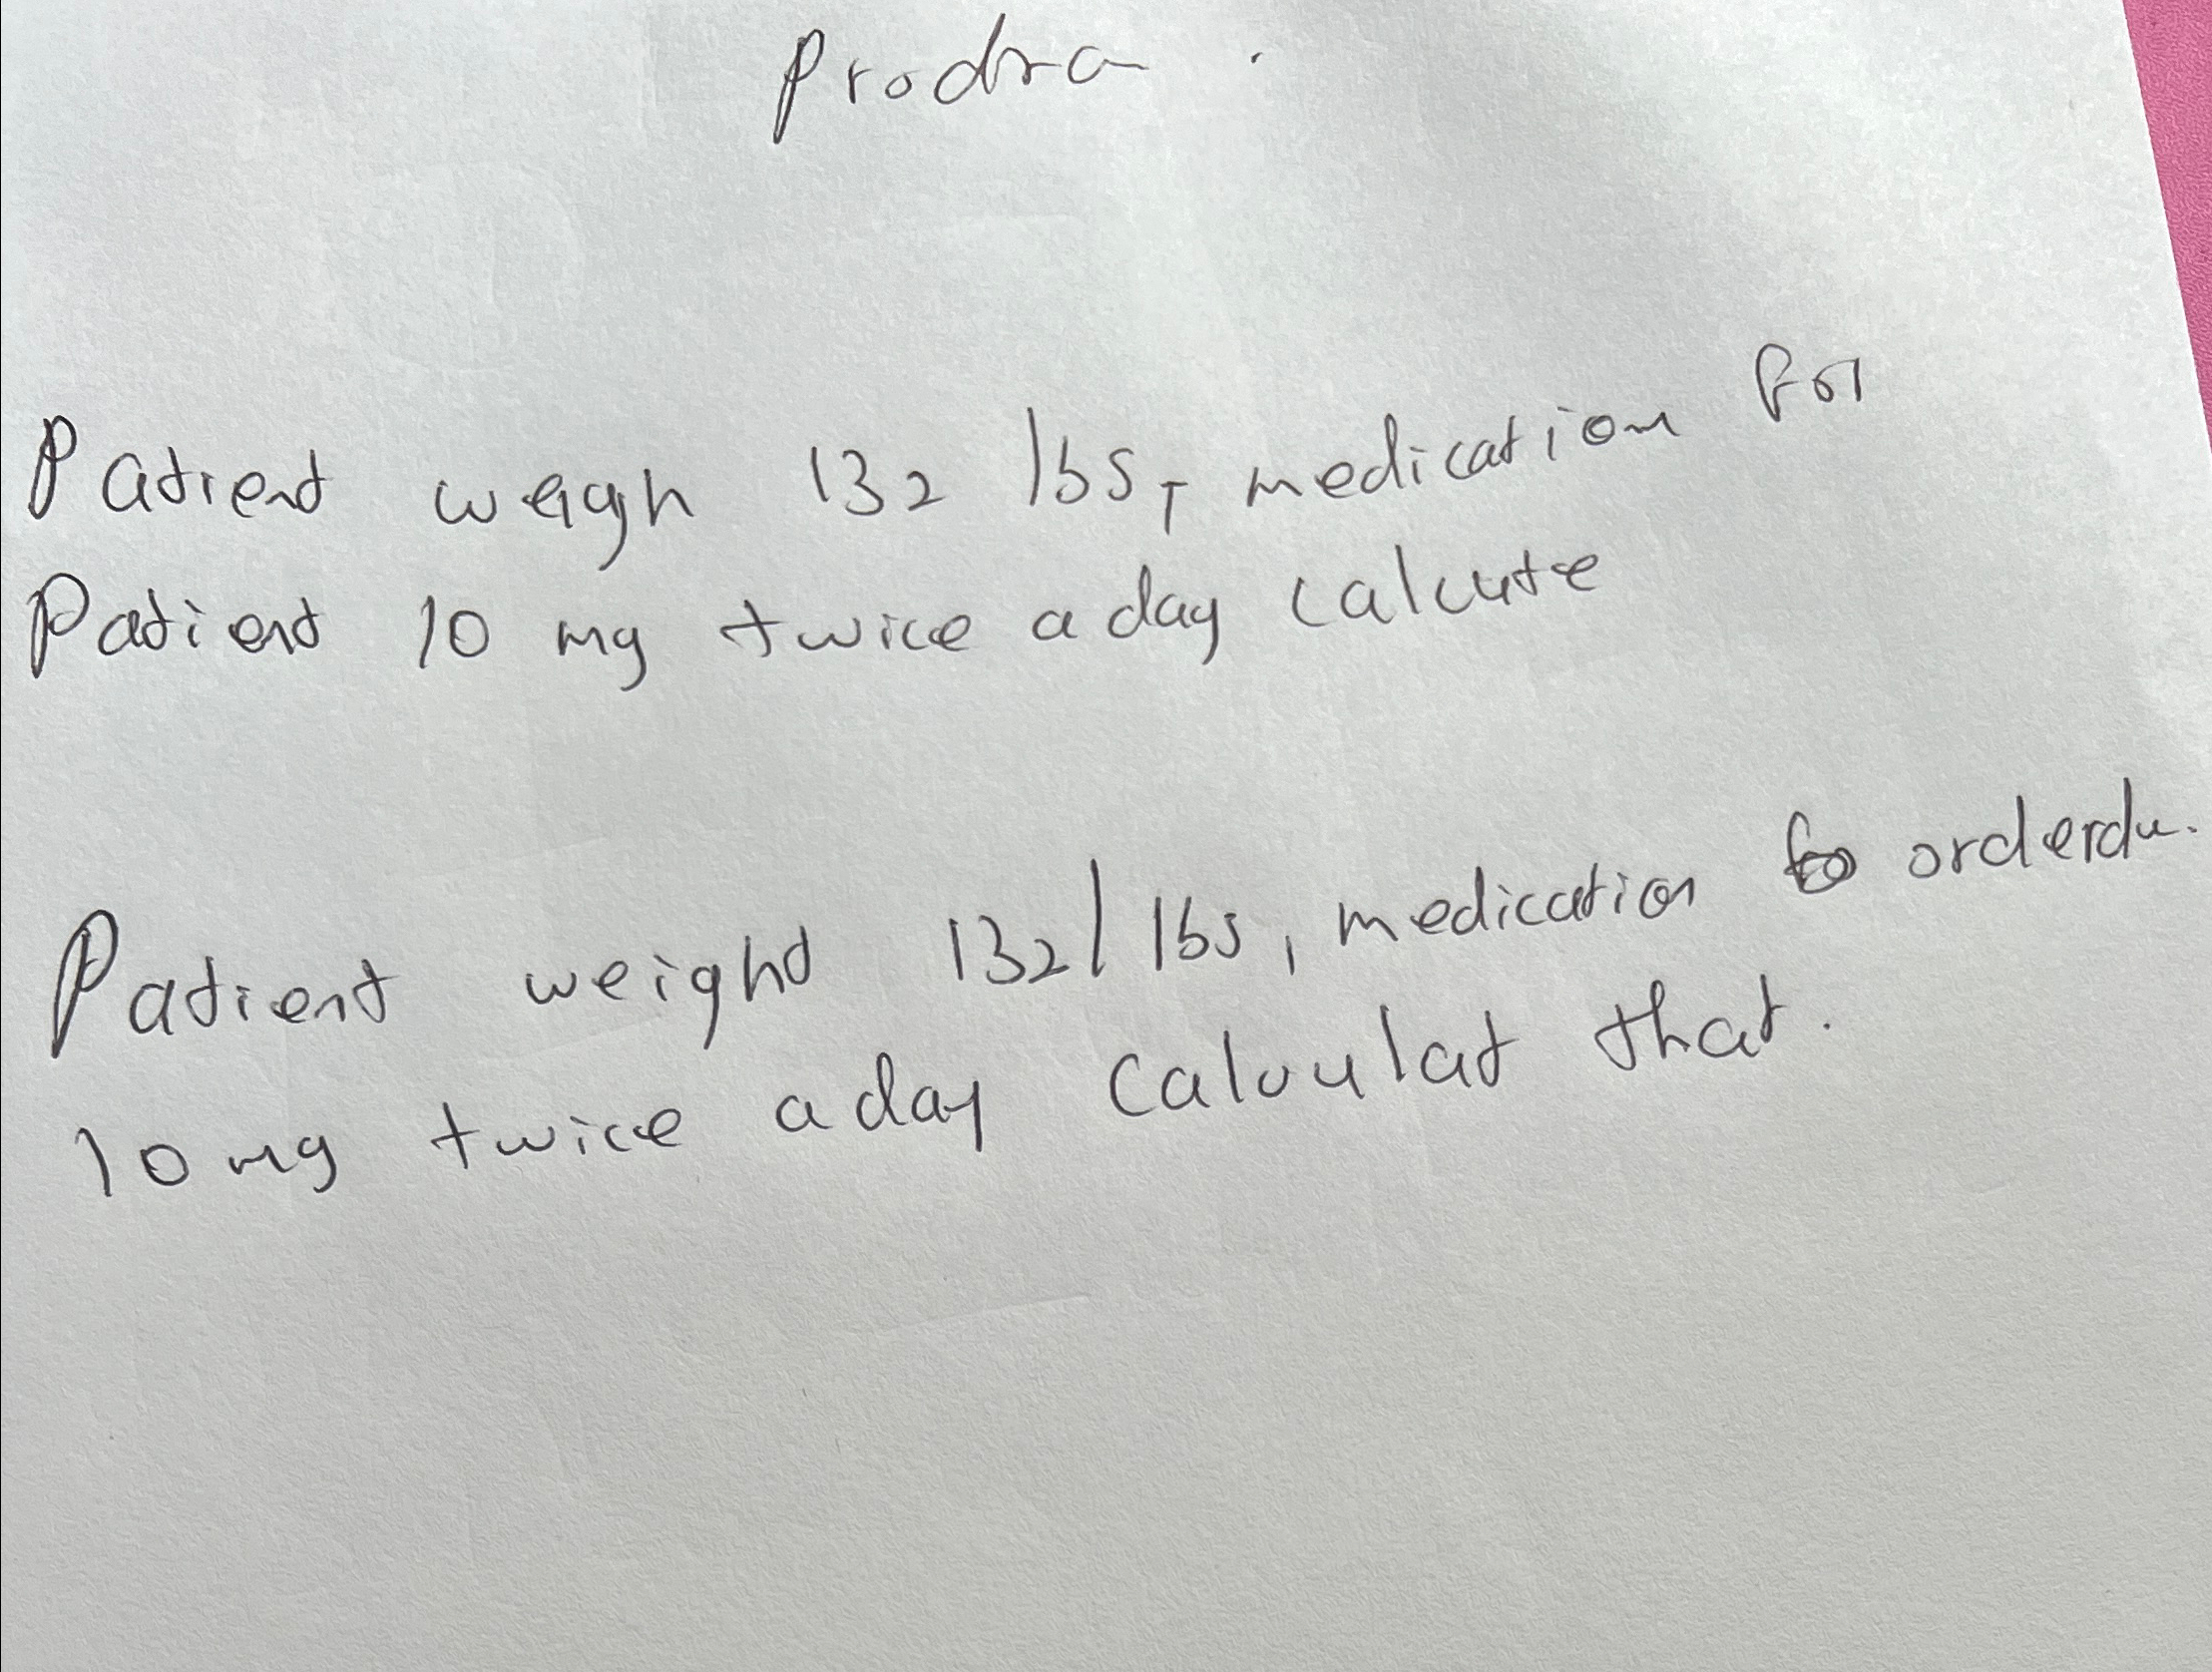 Prodra .
Patient weagh 132 lbs, medication for
Patient 10 mg twice a day calcute
Patient weight 132/ lbs, medication orderdu.
10 mg twice a day caloulat that.